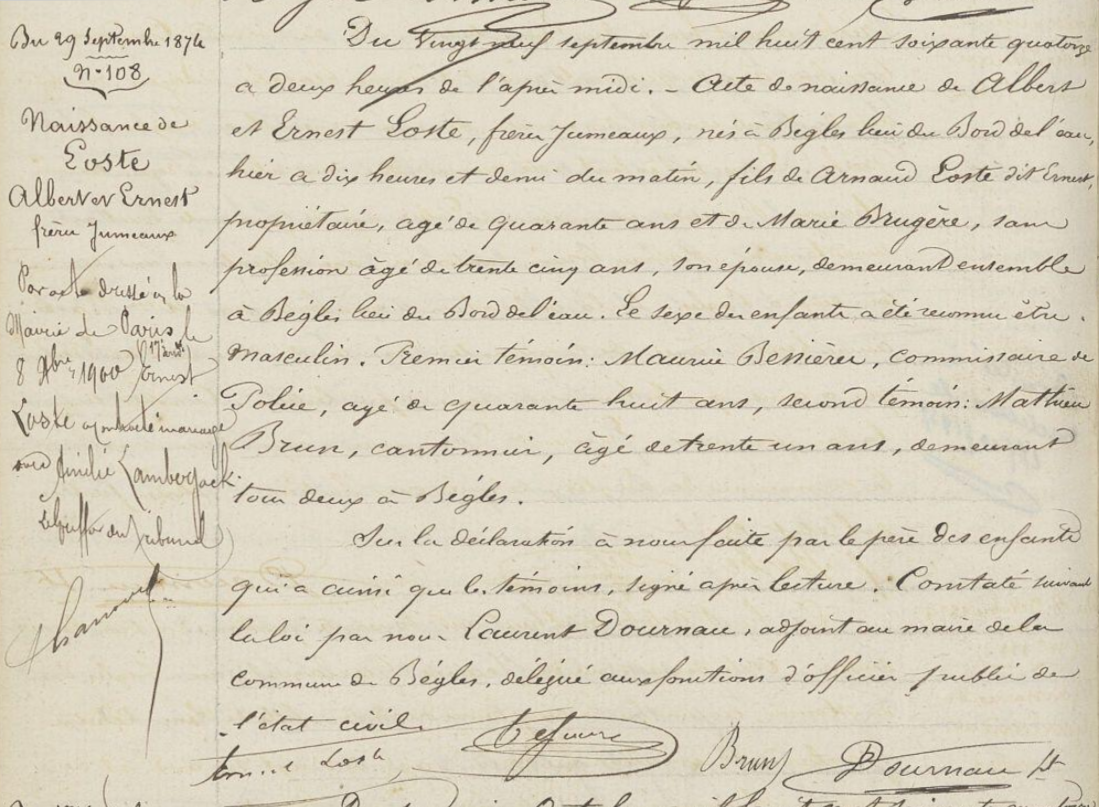 Du 29 Septembre 1874
N° 108
Naissance de
Loste
Albert et Ernest
frères Jumeaux
Par acte dressé en la
Mairie de Paris le
17e arrdt
8 Xbre 1900 Ernest
Loste a contracté mariage
avec Amélie Lamberjack
Le Greffier du Tribunal
Du Vingt neuf septembre mil huit cent soixante quatorze
a deux heures de l'après midi. - Acte de naissance de Albert
et Ernest Loste, frères Jumeaux, nés à Bègles lieu du Bord de l'eau,
hier a dix heures et demi du matin, fils de Arnaud Loste dit Ernest,
propriétaire, agé de quarante ans et de Marie Brugère, sans
profession âgé de trente cinq ans, son épouse, demeurant ensemble
à Bègles lieu du Bord de l'eau. Le sexe des enfants a été reconnu être
masculin. Premier témoin: Maurice Bessières, commissaire de
Police, agé de quarante huit ans, second témoin: Mathieu
Brun, cantonnier, âgé de trente un ans, demeurant
tous deux à Bègles.
Sur la déclaration à nous faite par le père des enfants
qui a ainsi que les témoins, signé après lecture. Constaté suivant
la loi par nous Laurent Dournau, adjoint au maire de la
commune de Bègles, délégué aux fonctions d'officier public de
l'état civil.
Ernest Loste Brun Dournau